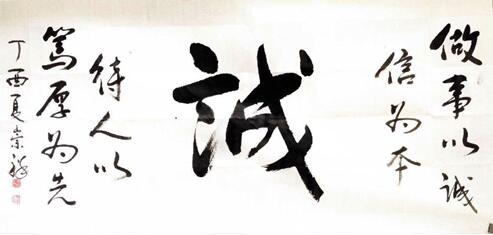 做事以誠
信为本
誠
待人以
篤厚为先
丁酉夏崇祥